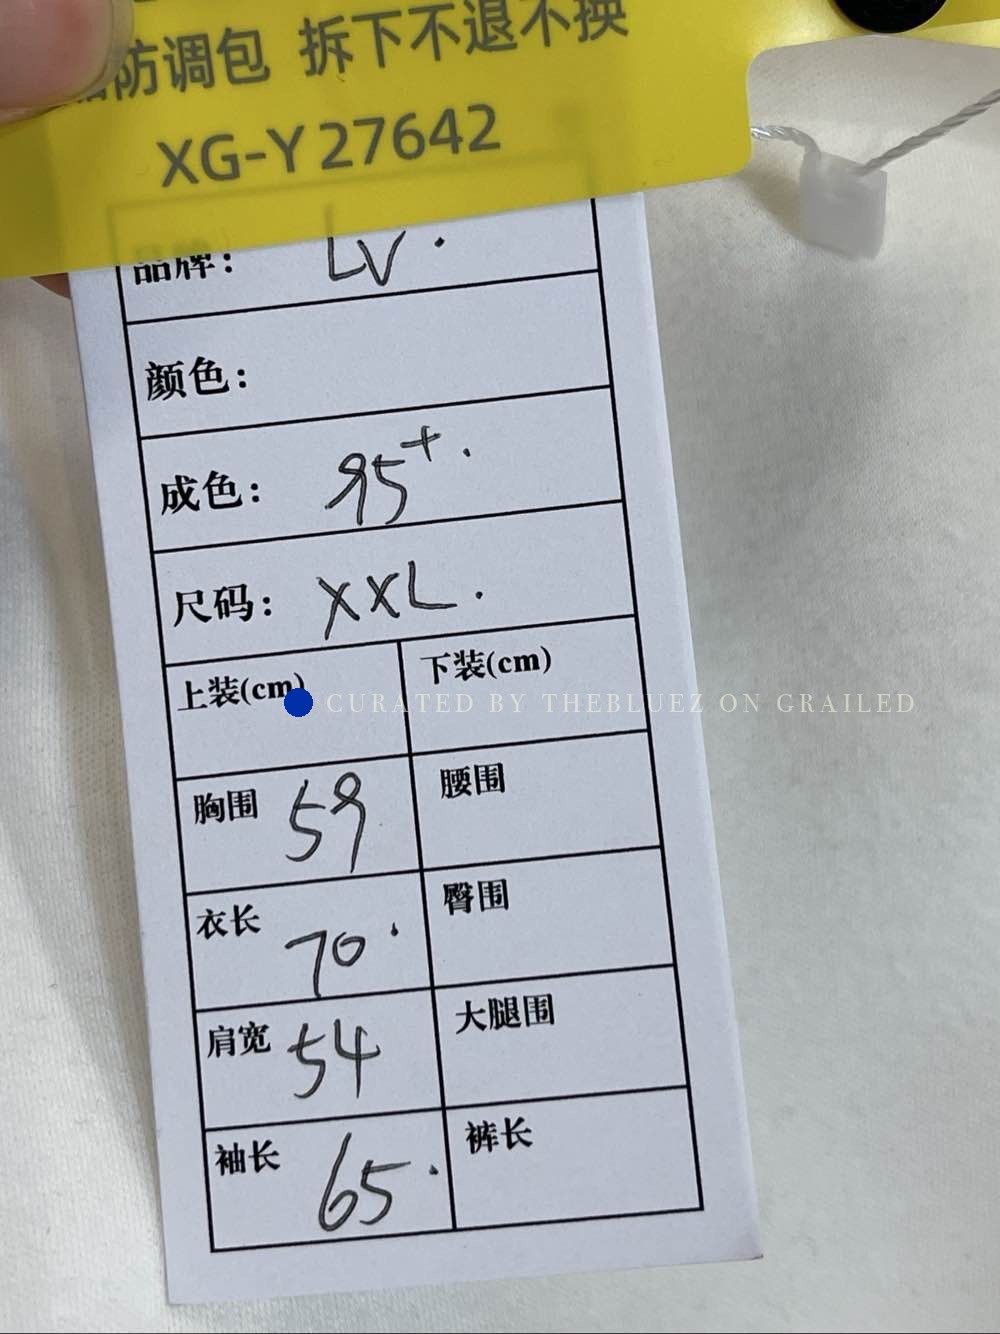 防调包 拆下不退不换
XG-Y27642
品牌: LV.
颜色:
成色: 95+.
尺码: XXL.
上装(cm) 下装(cm)
CURATED BY THEBLUEZ ON GRAILED
胸围 59 腰围
衣长 70. 臀围
肩宽 54 大腿围
袖长 65. 裤长